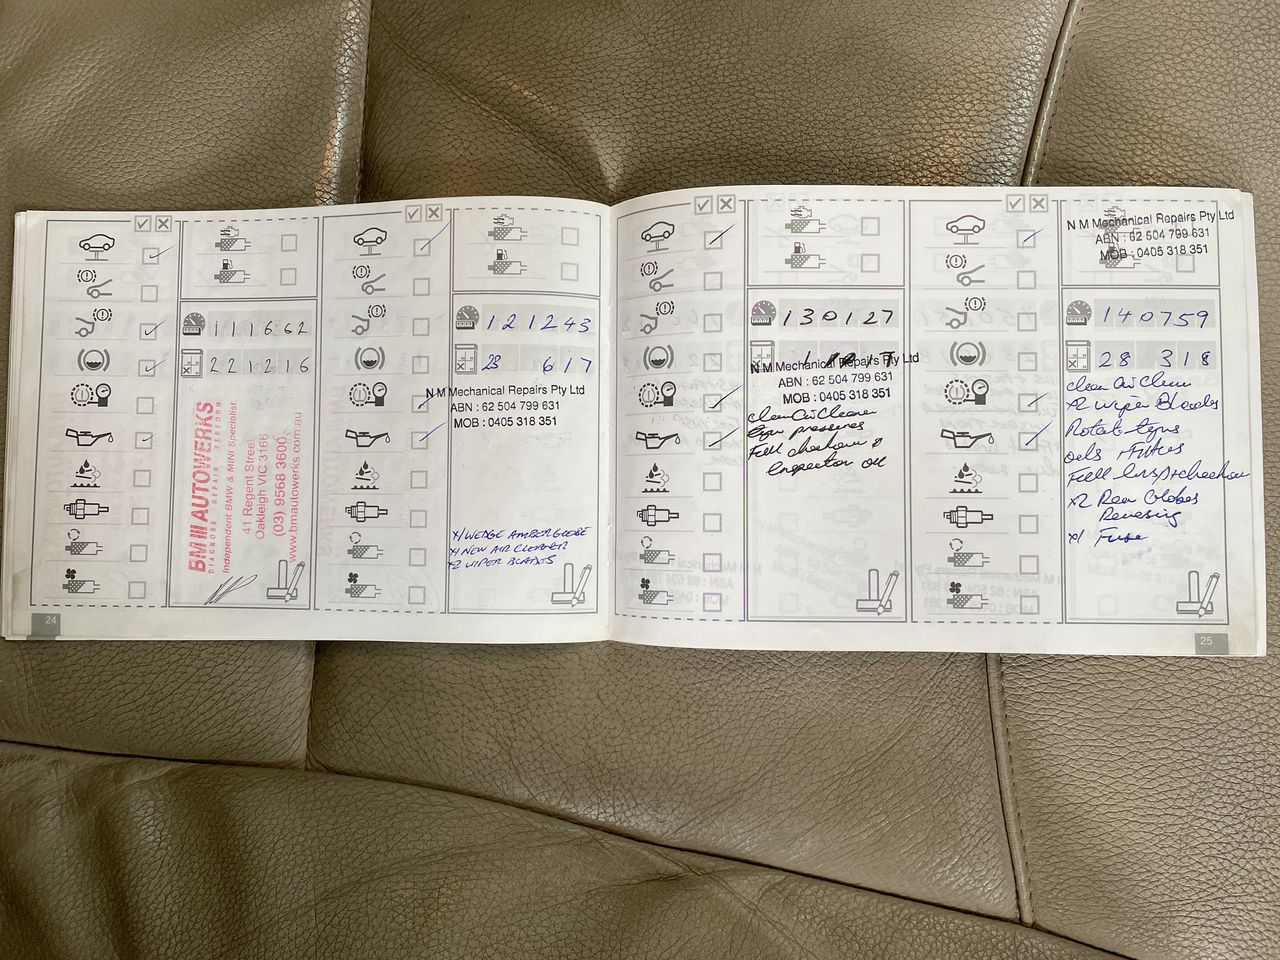 111662
221216
BM III AUTOWERKS
DIAGNOSE REPAIR PERFORM
Independent BMW & MINI Specialist
41 Regent Street
Oakleigh VIC 3166
(03) 9568 3600
www.bmautowerks.com.au
24
121243
23 617
N M Mechanical Repairs Pty Ltd
ABN : 62 504 799 631
MOB : 0405 318 351
x1 WEDGE AMBER GLOBE
x1 NEW AIR CLEANER
x2 WIPER BLADES
130127
N M Mechanical Repairs Pty Ltd
ABN : 62 504 799 631
MOB : 0405 318 351
clean Air Cleaner
pressures
Full
N M Mechanical Repairs Pty Ltd
ABN : 62 504 799 631
MOB : 0405 318 351
140759
28 318
clean Air Clean
x2 wiper Blades
Rotate
oils + Filters
Full
x2 Rear Globes
Reversing
x1 Fuse
25